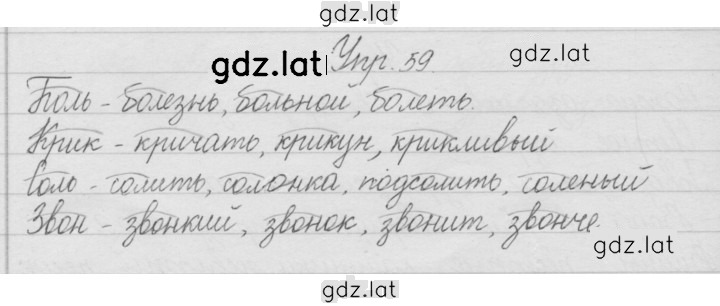 gdz.lat
gdz.lat Упр. 59 gdz.lat
Боль - болезнь, больной, болеть.
Крик - кричать, крикун, крикливый
Соль - солить, солонка, подсолить, соленый
Звон - звонкий, звонок, звонит, звонче.
gdz.lat
gdz.lat